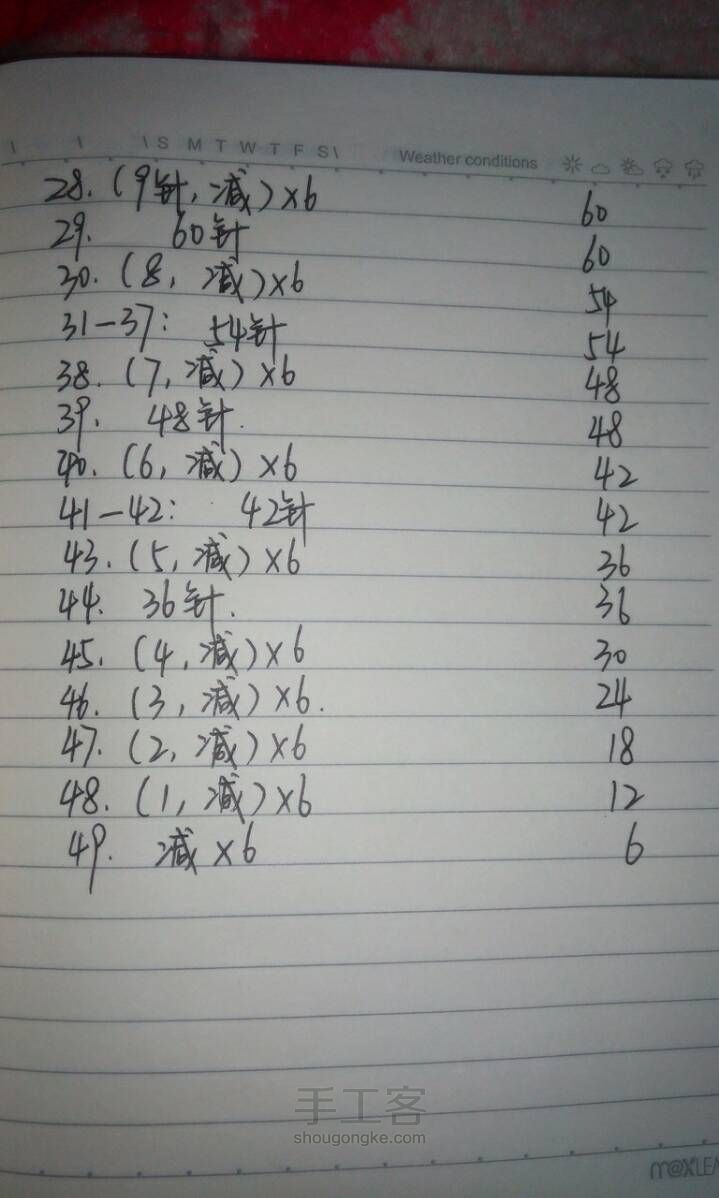 \ \ \ S M T W T F S \ Weather conditions
28. (9针, 减)×6 60
29. 60针 60
30. (8, 减)×6 54
31-37: 54针 54
38. (7, 减)×6 48
39. 48针. 48
40. (6, 减)×6 42
41-42: 42针 42
43. (5, 减)×6 36
44. 36针. 36
45. (4, 减)×6 30
46. (3, 减)×6. 24
47. (2, 减)×6 18
48. (1, 减)×6 12
49. 减×6 6
手工客
shougongke.com